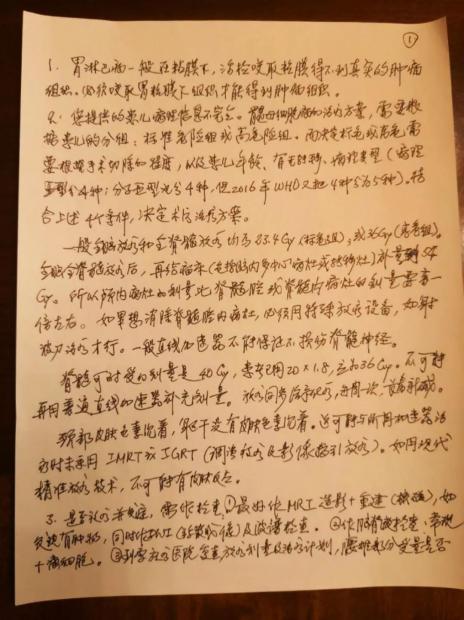 ①
1. 胃淋巴瘤一般在粘膜下，活检咬取粘膜得不到真实的肿瘤
组织。必须咬取胃粘膜下组织才能得到肿瘤组织。
2. 您提供的患儿病理信息不完全。髓母细胞瘤的治疗方案，需要根
据患儿的分组：标准危险组或高危险组。而决定标危或高危需
要根据手术切除的程度，以及患儿年龄、有无转移、病理类型（病理
亚型分4种；分子亚型也分4种，但2016年WHO又把4种分为5种）。结
合上述4个条件，决定术后治疗方案。
一般全脑放疗和全脊髓放疗均为23.4Gy（标危组），或36Gy（高危组）。
全脑全脊髓放疗后，再给瘤床（包括脑内多中心病灶或转移灶）补量到54
Gy。所以颅内病灶的剂量比脊髓腔或脊髓内病灶的剂量要高一
倍左右。如果想消除脊髓腔内病灶，必须用特殊放疗设备，如射
波刀治疗才行。一般直线加速器不能保证不损伤脊髓神经。
脊髓可耐受的剂量是40Gy，患者已用20×1.8，立为36Gy。不可能
再用普通直线加速器补充剂量。
颈部皮肤色素沉着，躯干没有皮肤色素沉着。这可能与所用加速器治
疗时未采用IMRT或IGRT（调强放疗及影像引导放疗）。如用现代
精准放疗技术，不可能有皮肤反应。
3. 是否放疗并发症，需作检查①最好作MRI造影+重建（核磁），如
怀疑有肿瘤，同时作DWI（弥散成像）及波谱检查。②作脑脊液检查，寻找
癌细胞。③到原放疗医院复查放疗剂量及治疗计划，腰椎部分受量是否